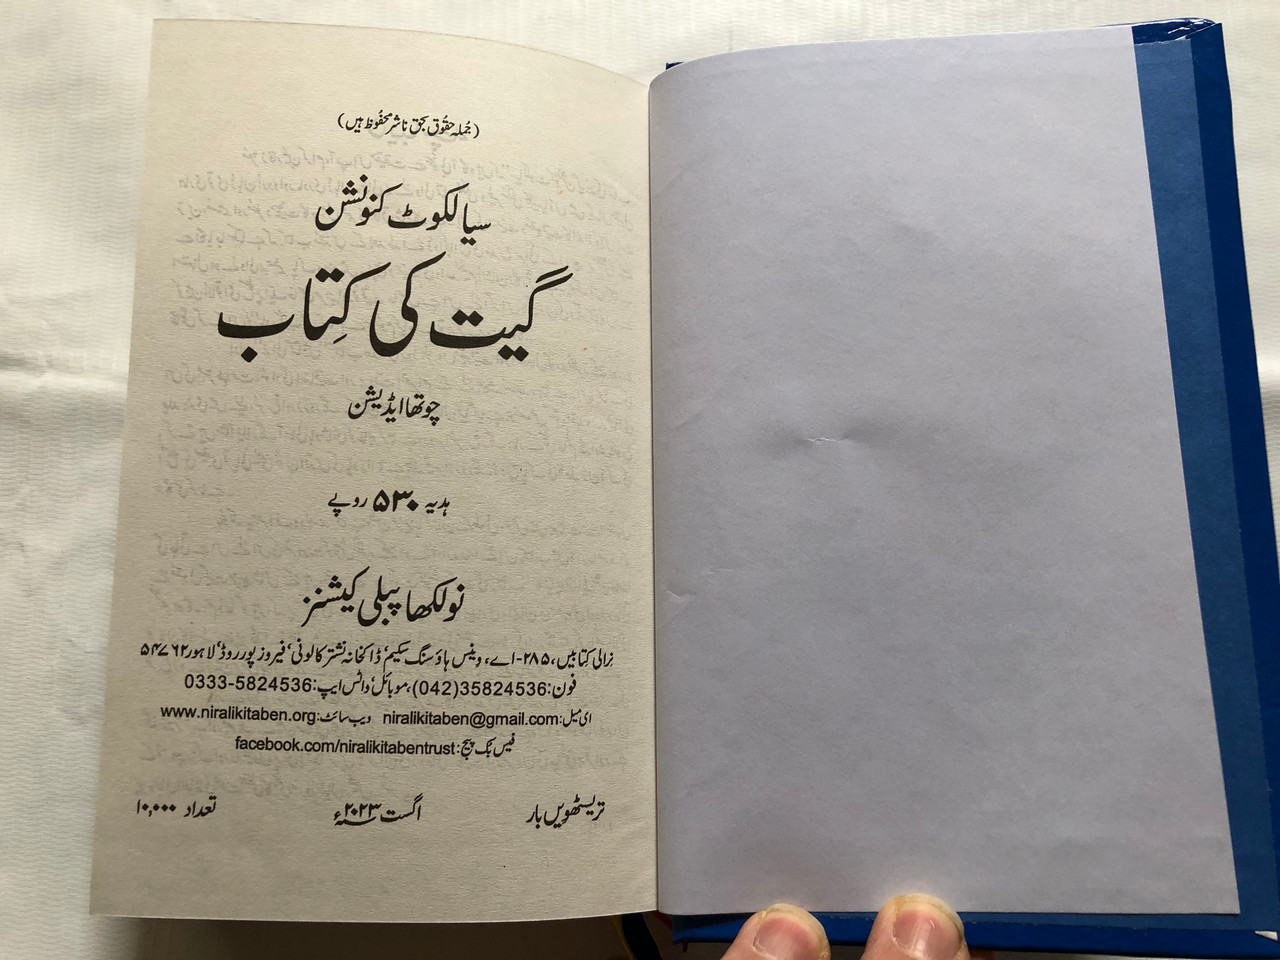 (جُملہ حقُوق بحق ناشر محفُوظ ہیں)
سیالکوٹ کنونشن
گیت کی کِتاب
چوتھا ایڈیشن
ہدیہ ۵۳۰ روپے
نولکھا پبلی کیشنز
نرالی کتابیں، ۲۸۵-اے، وینس ہاؤسنگ سکیم، ڈاکخانہ نشتر کالونی، فیروز پور روڈ، لاہور ۵۴۷۶۲
فون:35824536(042)،موبائل/واٹس ایپ:0333-5824536
ای میل:niralikitaben@gmail.com ویب سائٹ:www.niralikitaben.org
فیس بُک پیج:facebook.com/niralikitabentrust
تریسٹھویں بار اگست ۲۰۲۳ء تعداد ۱۰,۰۰۰